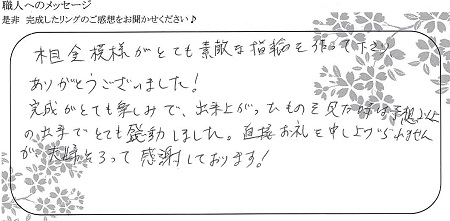 職人へのメッセージ
是非 完成したリングのご感想をお聞かせください♪
木目金模様がとても素敵な指輪を作って下さり
ありがとうございました!
完成がとても楽しみで、出来上がったものを見た時は予想以上
の出来でとても感動しました。直接お礼を申し上げられません
が、夫婦そろって感謝しております!